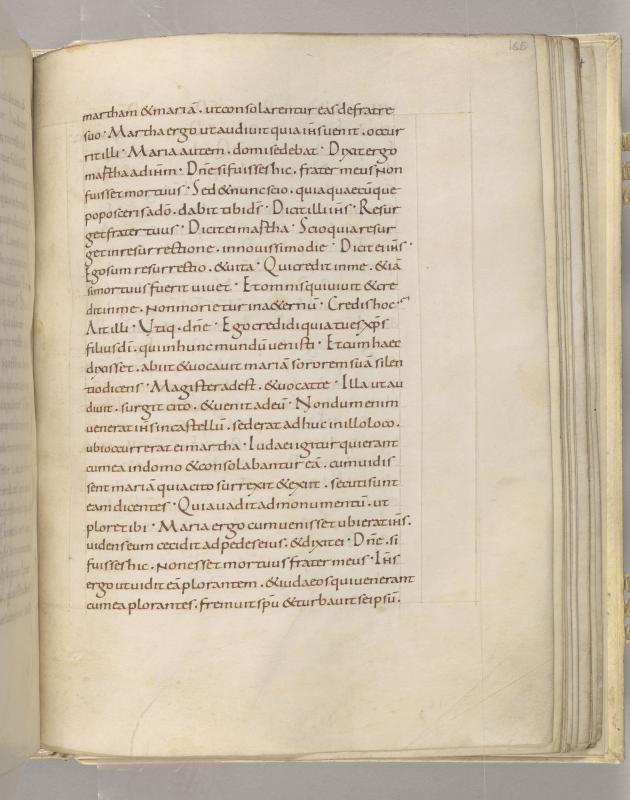 165
martham & mariā. ut consolarentur eas de fratre
suo. Martha ergo ut audiuit quia ih̄s uenit. occur
rit illi. Maria autem. domi sedebat. Dixit ergo
martha ad ih̄m. Dn̄e si fuisses hic. frater meus non
fuisset mortuus. Sed & nunc scio. quia quaecūque
poposceris a dō. dabit tibi ds̄. Dicit illi ih̄s. Resur
get frater tuus. Dicit ei martha. Scio quia resur
get in resurrectione. in nouissimo die. Dicit ei ih̄s.
Ego sum resurrectio. & uita. Qui credit in me. & iā
si mortuus fuerit uiuet. Et omnis qui uiuit & cre
dit in me. non morietur in a&ernū. Credis hoc.
Ait illi. Utiq. dn̄e. Ego credidi quia tu es xp̄s
filius dī. qui in hunc mundū uenisti. Et cum haec
dixisset. abiit & uocauit mariā sororem suā silen
tio dicens. Magister adest. & uocat te. Illa ut au
diuit. surgit cito. & uenit ad eū. Nondum enim
uenerat ih̄s in castellū. sed erat adhuc in illo loco.
ubi occurrerat ei martha. Iudaei igitur qui erant
cum ea in domo & consolabantur eā. cum uidis
sent mariā quia cito surrexit & exiit. secuti sunt
eam dicentes. Quia uadit ad monumentū. ut
ploret ibi. Maria ergo cum uenisset ubi erat ih̄s.
uidens eum cecidit ad pedes eius. & dixit ei. Dn̄e. si
fuisses hic. non esset mortuus frater meus. Ih̄s
ergo ut uidit eā plorantem. & iudaeos qui uenerant
cum ea plorantes. fremuit sp̄u & turbauit se ipsū.